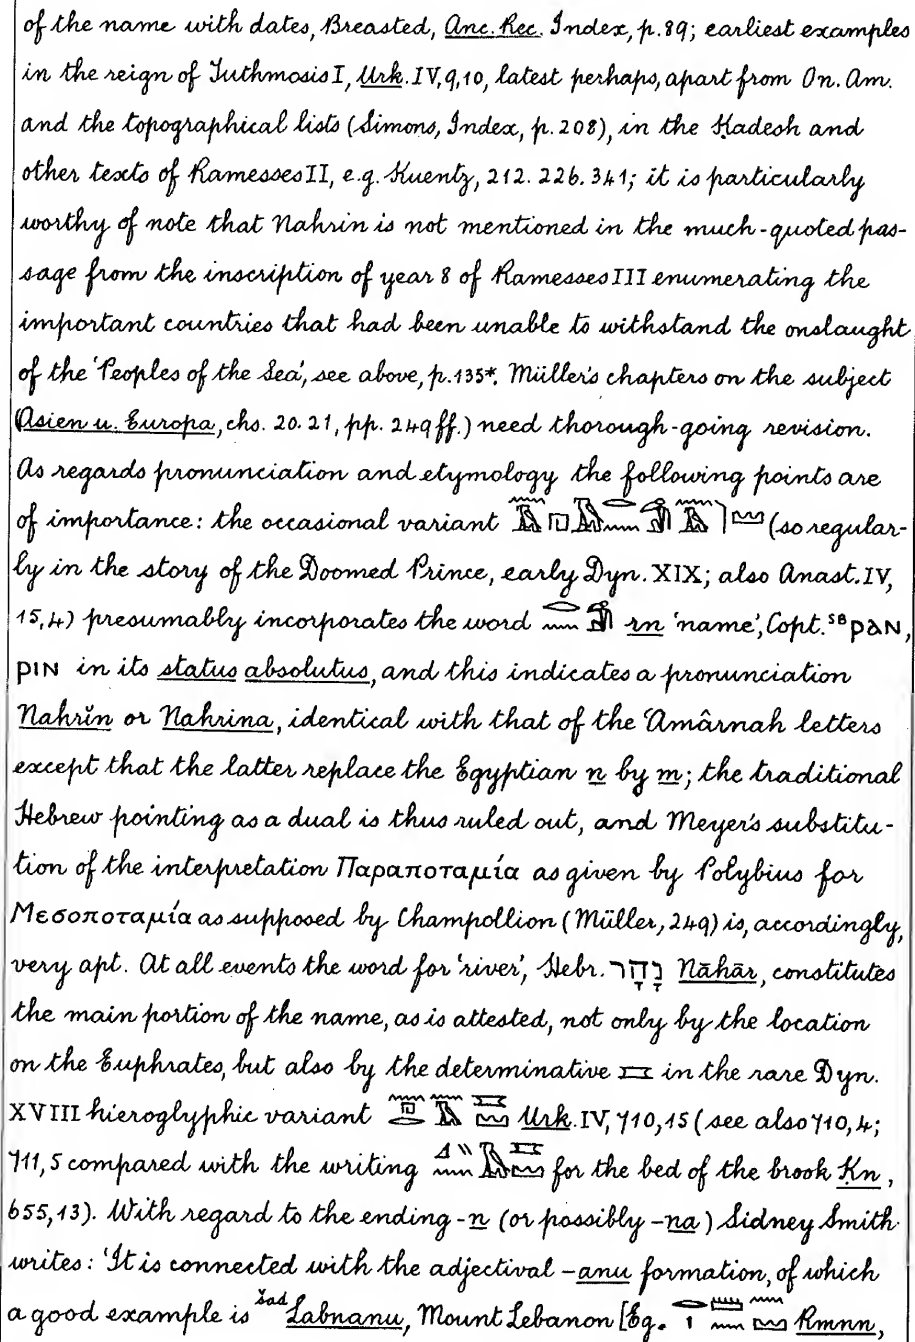 of the name with dates, Breasted, Anc. Rec. Index, p. 89; earliest examples
in the reign of Tuthmosis I, Urk. IV, 9, 10, latest perhaps, apart from On. Am.
and the topographical lists (Simons, Index, p. 208), in the Ḳadesh and
other texts of Ramesses II, e.g. Kuentz, 212. 226. 341; it is particularly
worthy of note that Nahrin is not mentioned in the much-quoted pas-
sage from the inscription of year 8 of Ramesses III enumerating the
important countries that had been unable to withstand the onslaught
of the 'Peoples of the Sea', see above, p. 135*. Müller's chapters on the subject
(Asien u. Europa, chs. 20. 21, pp. 249 ff.) need thorough-going revision.
As regards pronunciation and etymology the following points are
of importance: the occasional variant (so regular-
ly in the story of the Doomed Prince, early Dyn. XIX; also Anast. IV,
15, 4) presumably incorporates the word rn 'name', Copt. SB ⲣⲁⲛ,
ⲣⲓⲛ in its status absolutus, and this indicates a pronunciation
Nahrĭn or Nahrina, identical with that of the 'Amârnah letters
except that the latter replace the Egyptian n by m; the traditional
Hebrew pointing as a dual is thus ruled out, and Meyer's substitu-
tion of the interpretation Παραποταμία as given by Polybius for
Μεσοποταμία as supposed by Champollion (Müller, 249) is, accordingly,
very apt. At all events the word for 'river', Hebr. נָהָר Nāhār, constitutes
the main portion of the name, as is attested, not only by the location
on the Euphrates, but also by the determinative 𓈘 in the rare Dyn.
XVIII hieroglyphic variant Urk. IV, 710, 15 (see also 710, 4;
711, 5 compared with the writing for the bed of the brook Ḳn,
655, 13). With regard to the ending -n (or possibly -na) Sidney Smith
writes: 'It is connected with the adjectival -anu formation, of which
a good example is šad Labnanu, Mount Lebanon [Eg. Rmnn,